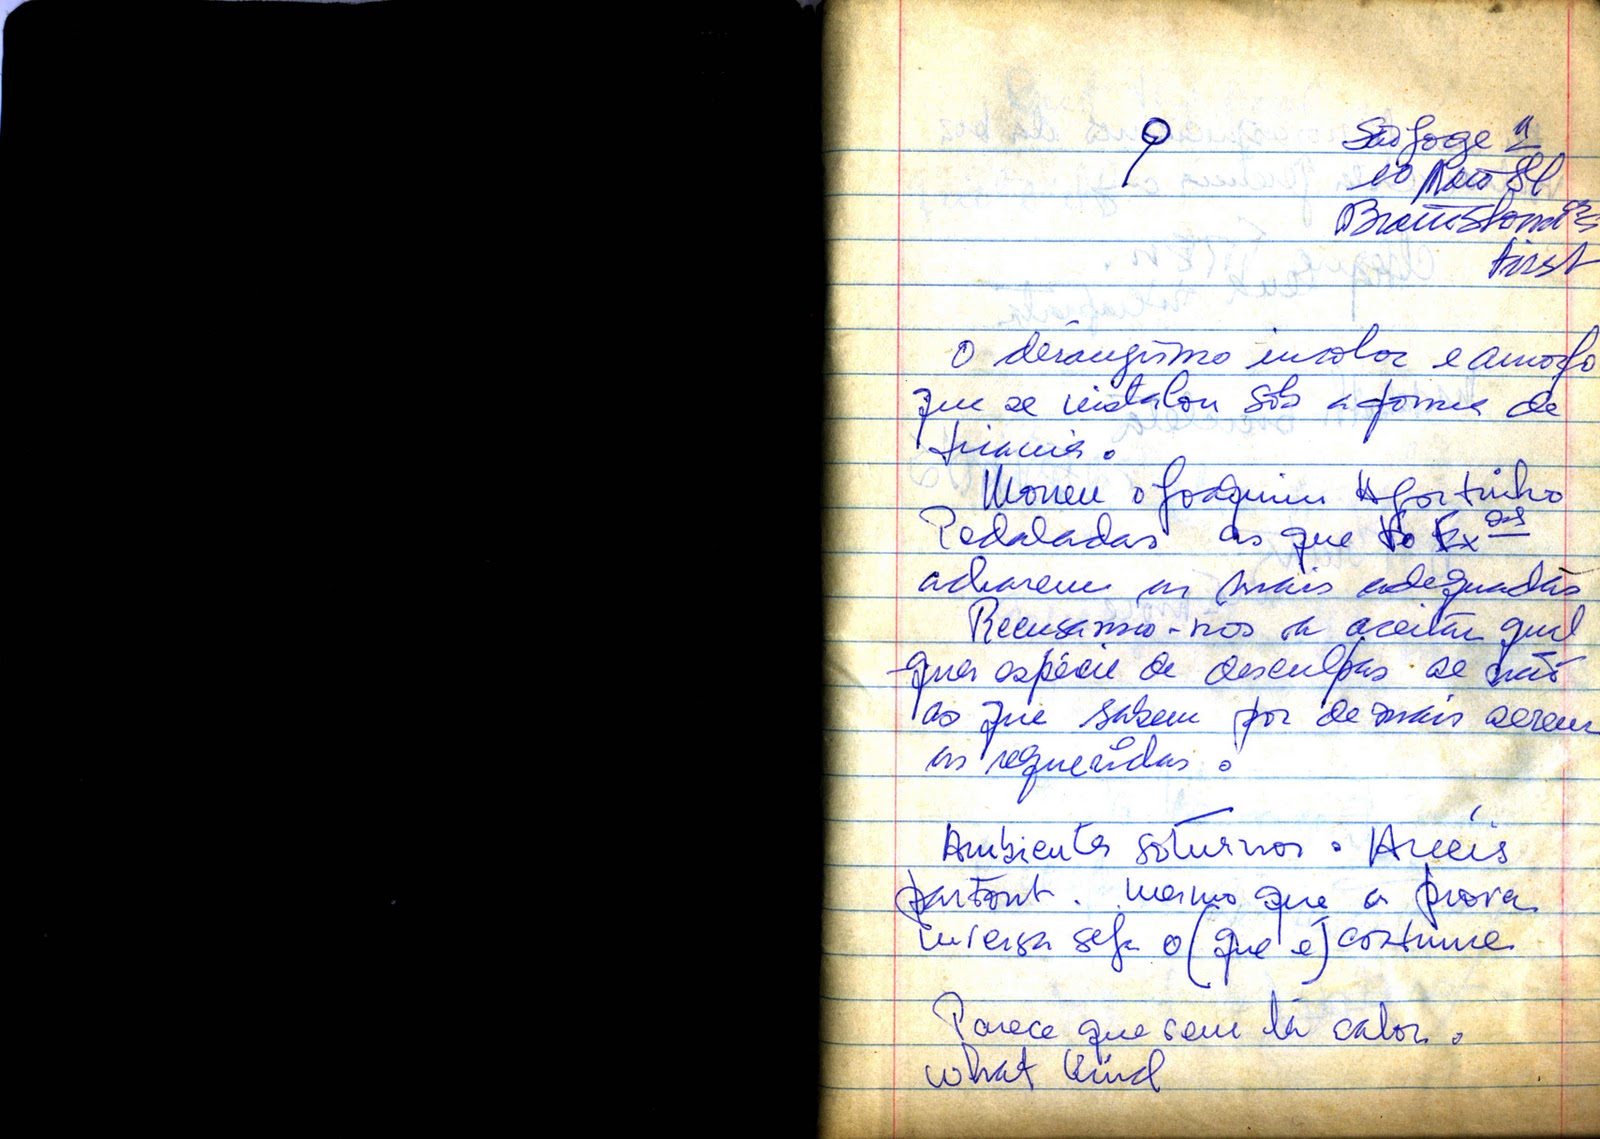 São Jorge
first
O incolor e amorfo
que se instalou sob a forma de
tirania.
Morreu o Joaquim Agostinho
Pedaladas as que Vo Exas
acharem as mais adequadas
Recusamo-nos a aceitar qual
quer espécie de desculpas se não
as que sabem por demais serem
as requeridas.
Ambientes soturnos.
partout. mesmo que a prova
inversa seja o (que é) costume
Parece que vem lá calor.
what kind